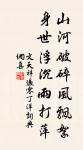 山河破碎風飄絮
身世浮沉雨打萍
文天祥過零丁洋詞典
網喜